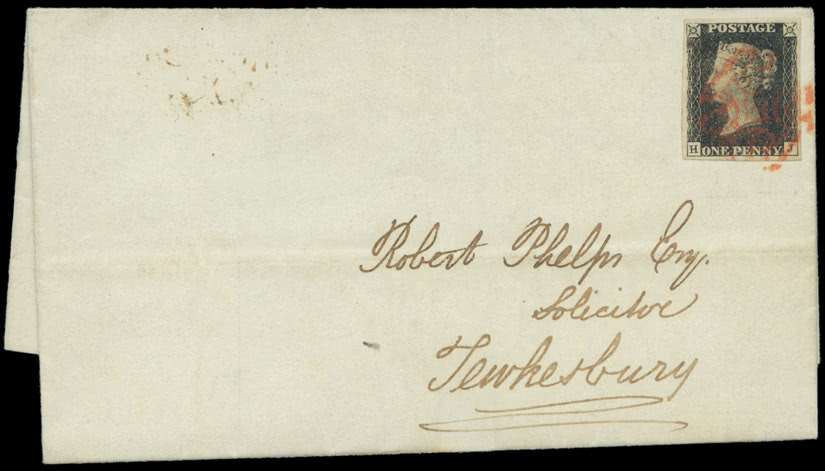 POSTAGE
H ONE PENNY J
Robert Phelps Esq.
Solicitor
Tewkesbury